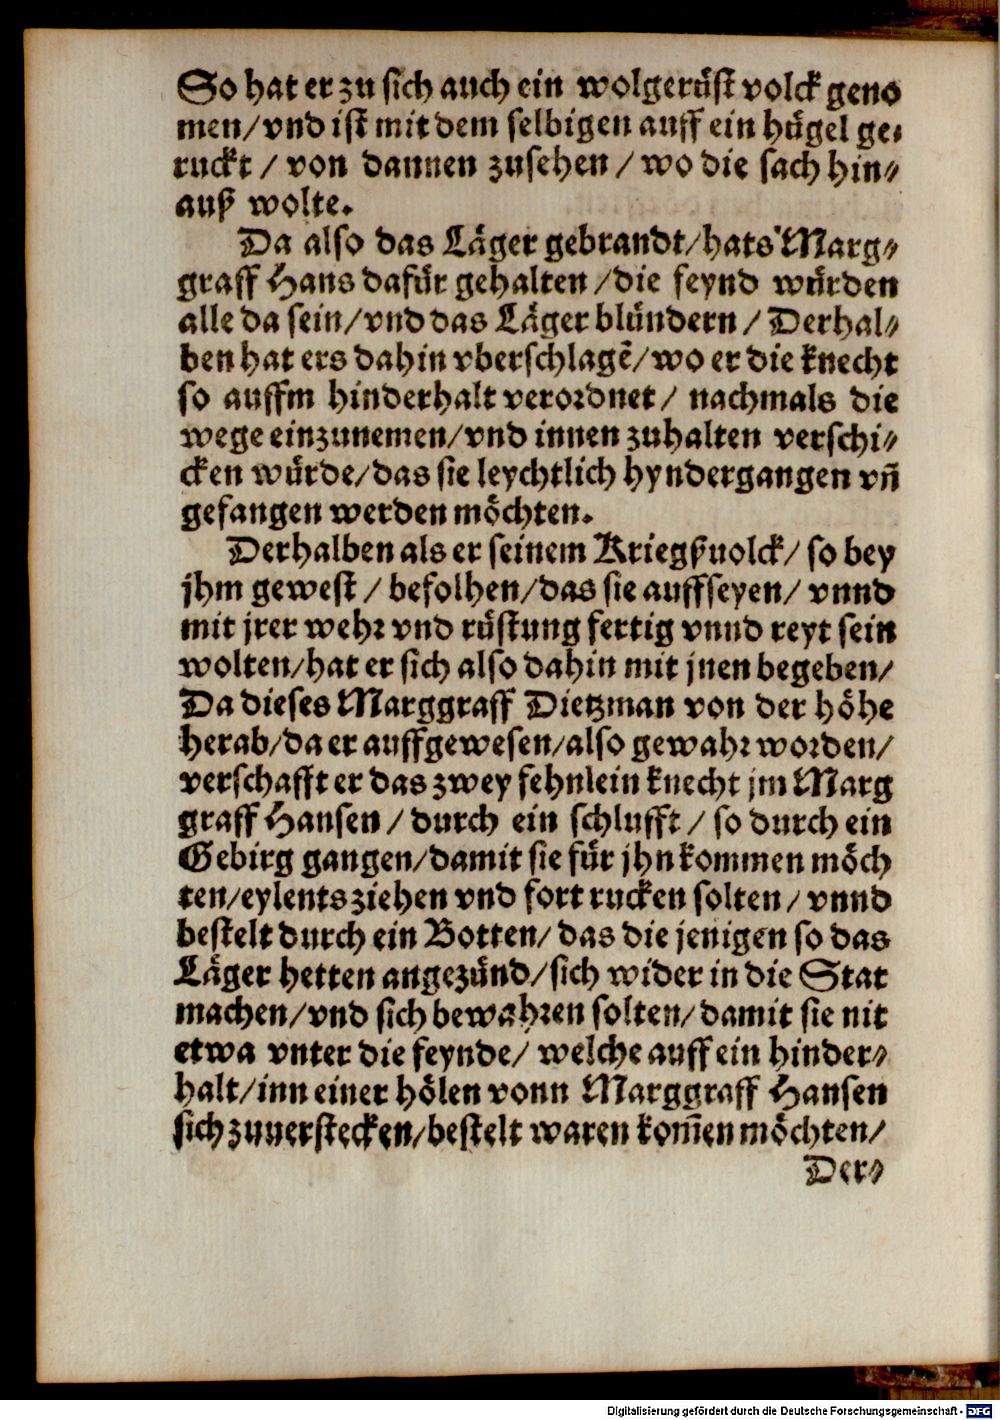 So hat er zu sich auch ein wolgerüst volck geno
men/vnd ist mit dem selbigen auff ein hügel ge-
ruckt / von dannen zusehen / wo die sach hin-
auß wolte.
Da also das Läger gebrandt/hats Marg-
graff Hans dafür gehalten /die feynd würden
alle da sein/vnd das Läger blündern / Derhal-
ben hat ers dahin vberschlagẽ/wo er die knecht
so auffm hinderhalt verordnet / nachmals die
wege einzunemen/vnd innen zuhalten verschi-
cken würde/das sie leychtlich hyndergangen vñ
gefangen werden möchten.
Derhalben als er seinem Kriegßuolck/ so bey
jhm gewest / befolhen/das sie auffseyen/ vnnd
mit jrer wehr vnd rüstung fertig vnnd reyt sein
wolten/hat er sich also dahin mit jnen begeben/
Da dieses Marggraff Dietzman von der höhe
herab/da er auffgewesen/also gewahr worden/
verschafft er das zwey fehnlein knecht jm Marg
graff Hansen / durch ein schlufft / so durch ein
Gebirg gangen/damit sie für jhn kommen möch
ten/eylents ziehen vnd fort rucken solten / vnnd
bestelt durch ein Botten/ das die jenigen so das
Läger hetten angezünd/sich wider in die Stat
machen/vnd sich bewahren solten/damit sie nit
etwa vnter die feynde/ welche auff ein hinder-
halt/inn einer hölen vonn Marggraff Hansen
sich zuuerstecken/bestelt waren kom̃en möchten/
Der-
Digitalisierung gefördert durch die Deutsche Forschungsgemeinschaft - DFG